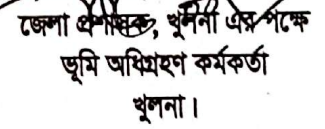 জেলা প্রশাসক, খুলনা এর পক্ষে
ভূমি অধিগ্রহণ কর্মকর্তা
খুলনা।